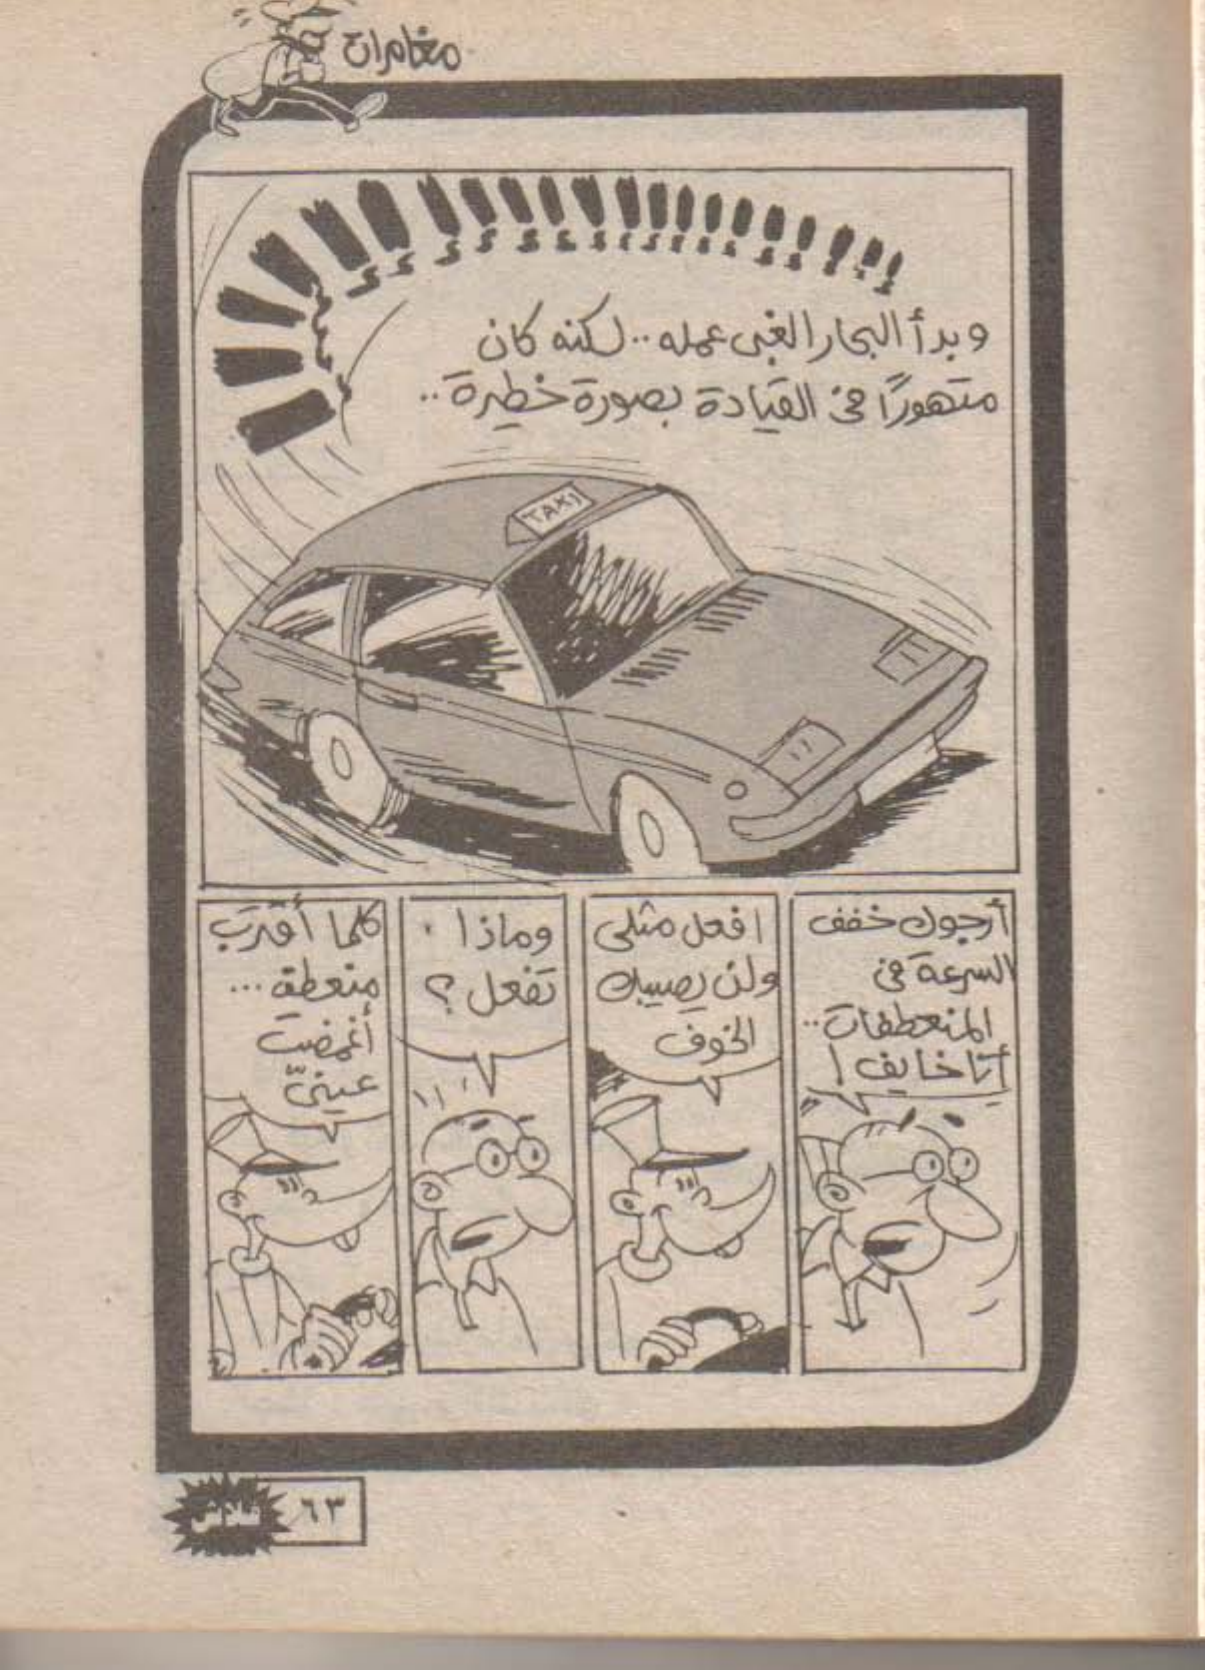 مغامرات
وبدأ البحار الغبى عمله .. لكنه كان
متهورًا فى القيادة بصورة خطيرة ..
TAXI
أرجوك خفف
السرعة فى
المنعطفات ..
أنا خايف !
افعل مثلى
ولن يصيبك
الخوف
وماذا
تفعل ؟
كلما أقترب
منعطف ...
أغمضت
عينىّ
٦٣
فلاش